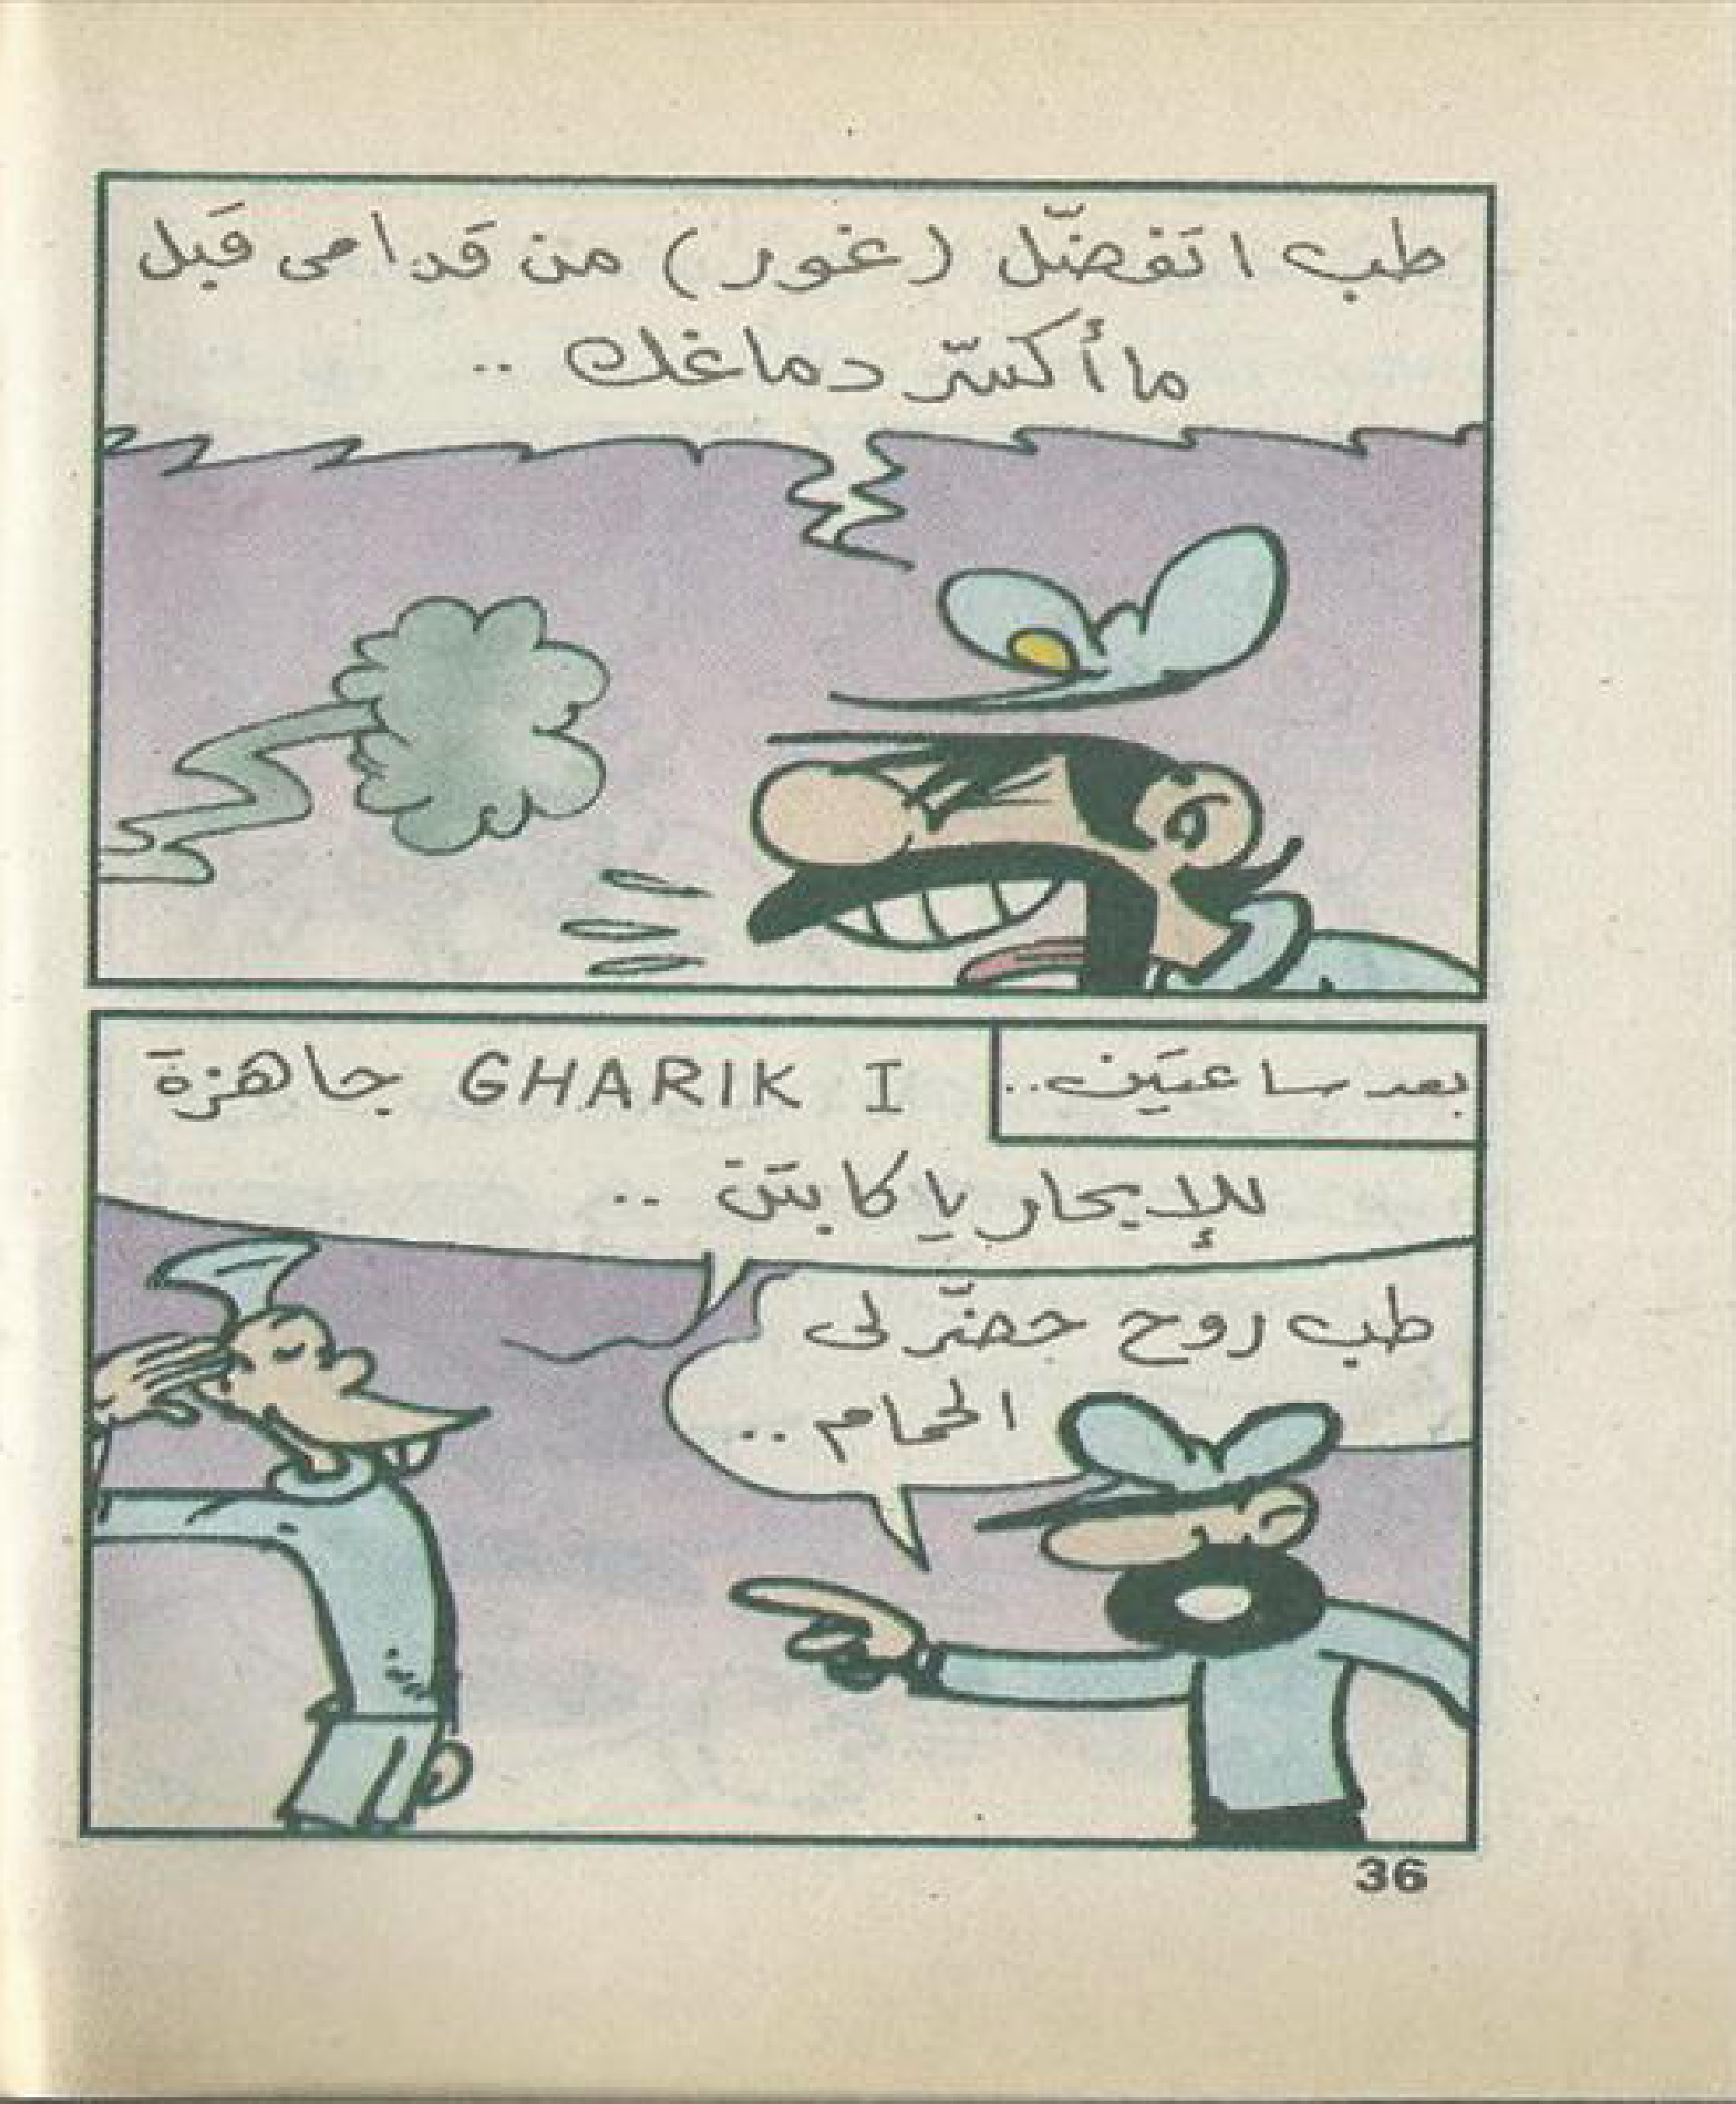 طب اتفضّل (غور) من قدامى قبل
ما أكسّر دماغك ..
بعد ساعتين..
GHARIK I جاهزة
للإبحار يا كابتن ..
طب روح حضّر لى
الحمام ..
36